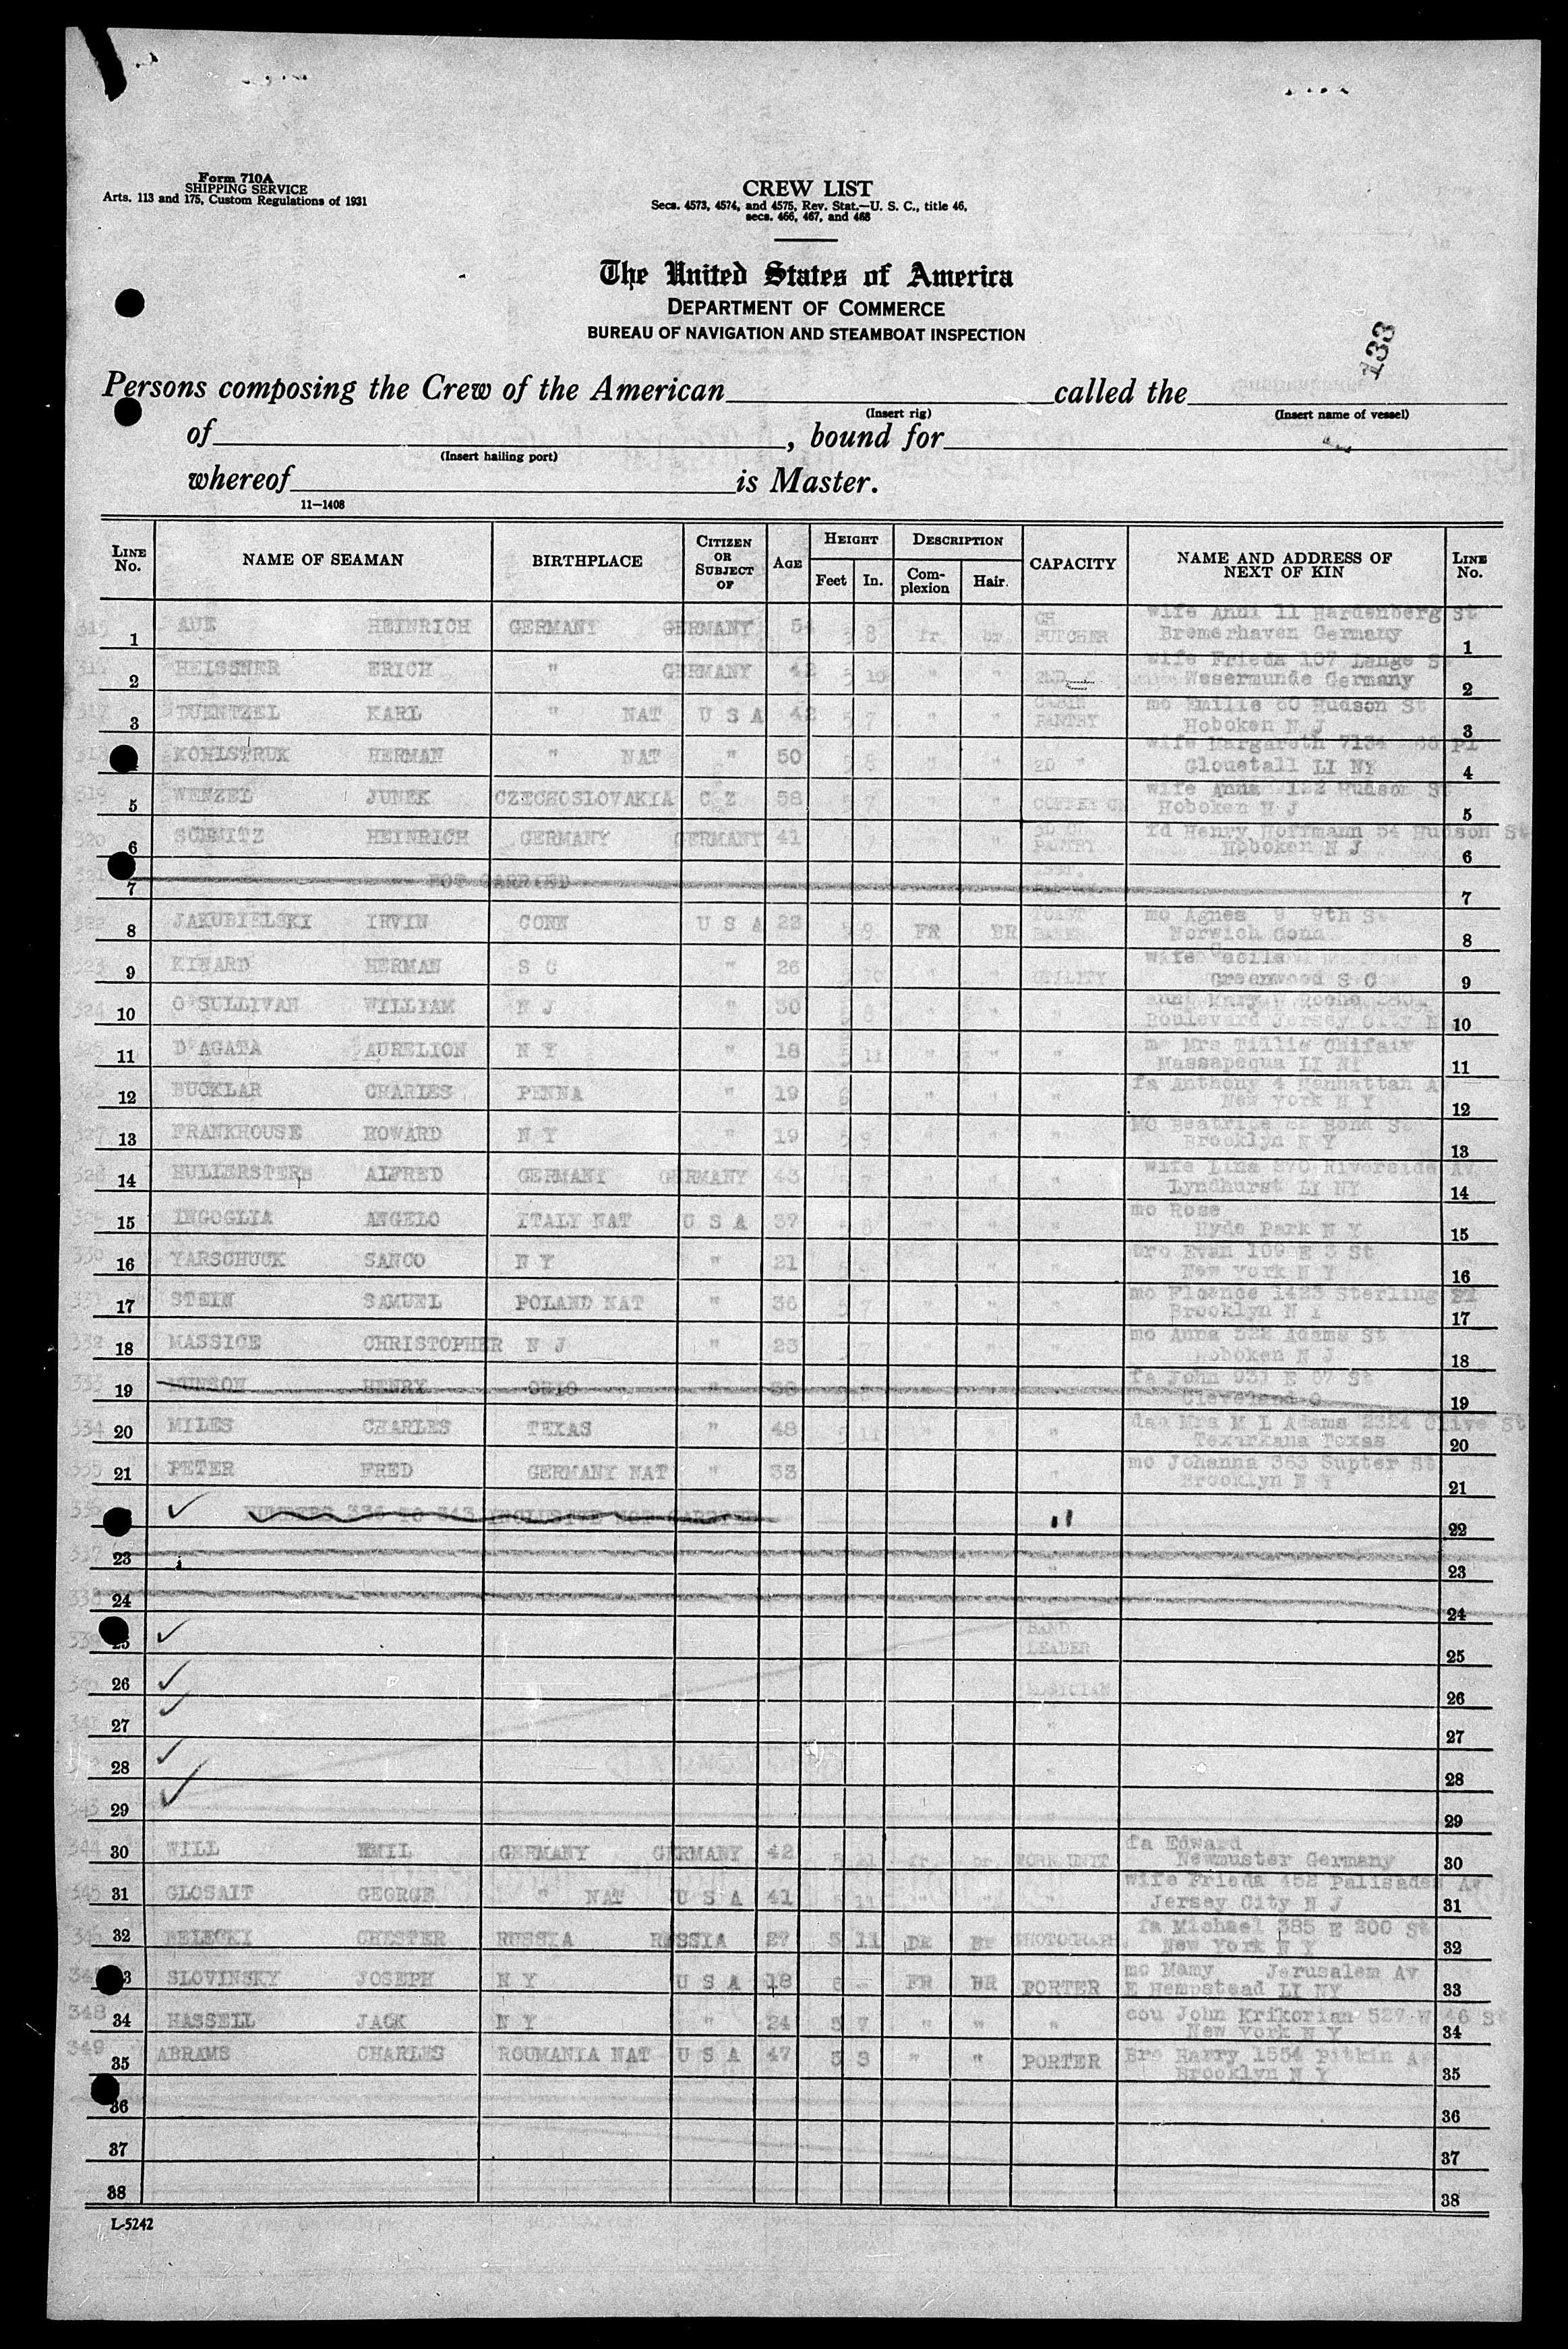 Form 710A
SHIPPING SERVICE
Arts. 113 and 175, Custom Regulations of 1931
CREW LIST
Secs. 4573, 4574, and 4575, Rev. Stat.—U. S. C., title 46,
secs. 466, 467, and 468
The United States of America
DEPARTMENT OF COMMERCE
BUREAU OF NAVIGATION AND STEAMBOAT INSPECTION
133
Persons composing the Crew of the American called the
(Insert rig) (Insert name of vessel)
of , bound for
(Insert hailing port)
whereof is Master.
11—1408
LINE No. NAME OF SEAMAN BIRTHPLACE CITIZEN OR SUBJECT OF AGE HEIGHT Feet In. DESCRIPTION Complexion Hair. CAPACITY NAME AND ADDRESS OF NEXT OF KIN LINE No.
315 1 AUE HEINRICH GERMANY GERMANY 54 5 8 fr br CH BUTCHER wife Andi 11 Hardenberg St 1
Bremerhaven Germany
2 HEISSNER ERICH " GERMANY 42 5 10 " " 2ND wife Frieda 107 Lange 2
Wesermunde Germany
317 3 DUENTZEL KARL " NAT U S A 42 5 7 " " CABIN PANTRY mo Emilie 60 Hudson St 3
Hoboken N J
KOHLSTRUK HERMAN " NAT " 50 5 " " 2D " wife Margareth 7134 Pl 4
LI NY
319 5 WENZEL JUNEK CZECHOSLOVAKIA C Z 58 5 7 " " wife Anna 122 Hudson St 5
Hoboken N J
320 6 SCHMITZ HEINRICH GERMANY GERMANY 41 7 " " PANTRY fd Henry Hoffmann 54 Hudson St 6
Hoboken N J
7 NOT CARRIED 7
322 8 JAKUBIELSKI IRVIN CONN U S A 22 5 8 FR BR TOAST BAKER mo Agnes 9 9th St 8
Norwich Conn
323 9 KINARD HERMAN S C " 26 5 10 " " UTILITY wife 9
Greenwood S C
324 10 O'SULLIVAN WILLIAM N J " 30 5 8 " " " aunt Mary Roche 10
Boulevard Jersey City N
325 11 D'AGATA AURELION N Y " 18 5 11 " " " mo Mrs Tillie 11
Massapequa LI NY
326 12 BUCKLAR CHARLES PENNA " 19 6 " " " fa Anthony 4 Manhattan A 12
New York N Y
327 13 FRANKHOUSE HOWARD N Y " 19 5 9 " " " MO Beatrice Bond St 13
Brooklyn N Y
328 14 ALFRED GERMANY GERMANY 43 5 7 " " " wife Lina 370 Riverside Av 14
Lyndhurst LI NY
15 INGOGLIA ANGELO ITALY NAT U S A 37 5 8 " " " mo Rose 15
Hyde Park N Y
330 16 YARSCHUCK SANCO N Y " 21 " " " bro Evan 109 E 3 St 16
New York N Y
331 17 STEIN SAMUEL POLAND NAT " 36 5 7 " " " mo Florence 1423 Sterling Pl 17
Brooklyn N Y
332 18 MASSICE CHRISTOPHER N J " 23 " " " mo Anna 322 Adams St 18
Hoboken N J
333 19 HENRY OHIO " fa John 931 E 67 St 19
Cleveland O
334 20 MILES CHARLES TEXAS " 48 5 11 " " " dau Mrs M L Adams 2324 Olive St 20
Texarkana Texas
335 21 PETER FRED GERMANY NAT " 33 " mo Johanna 363 Supter St 21
Brooklyn N Y
336 NUMBERS 336 TO 343 INCLUSIVE NOT CARRIED " 22
337 23 " 23
338 24 24
339 25 BAND LEADER 25
26 MUSICIAN 26
341 27 " 27
28 " 28
343 29 " 29
344 30 WILL EMIL GERMANY GERMANY 42 5 11 fr br WORK UNIT fa Edward 30
Newmuster Germany
345 31 GLOSAIT GEORGE " NAT U S A 41 5 11 " " " wife Frieda 452 Palisades Av 31
Jersey City N J
346 32 BELECKI CHESTER RUSSIA RUSSIA 27 5 11 DK BR PHOTOGRAPH fa Michael 385 E 200 St 32
New York N Y
SLOVINSKY JOSEPH N Y U S A 18 6 - FR BR PORTER mo Mamy Jerusalem Av 33
E Hempstead LI NY
348 34 HASSELL JACK N Y " 24 5 7 " " " cou John Krikorian 527 W 46 St 34
New York N Y
349 35 ABRAMS CHARLES ROUMANIA NAT U S A 47 5 3 " " PORTER Bro Harry 1554 Pitkin A 35
Brooklyn N Y
36 36
37 37
38 38
L-5242